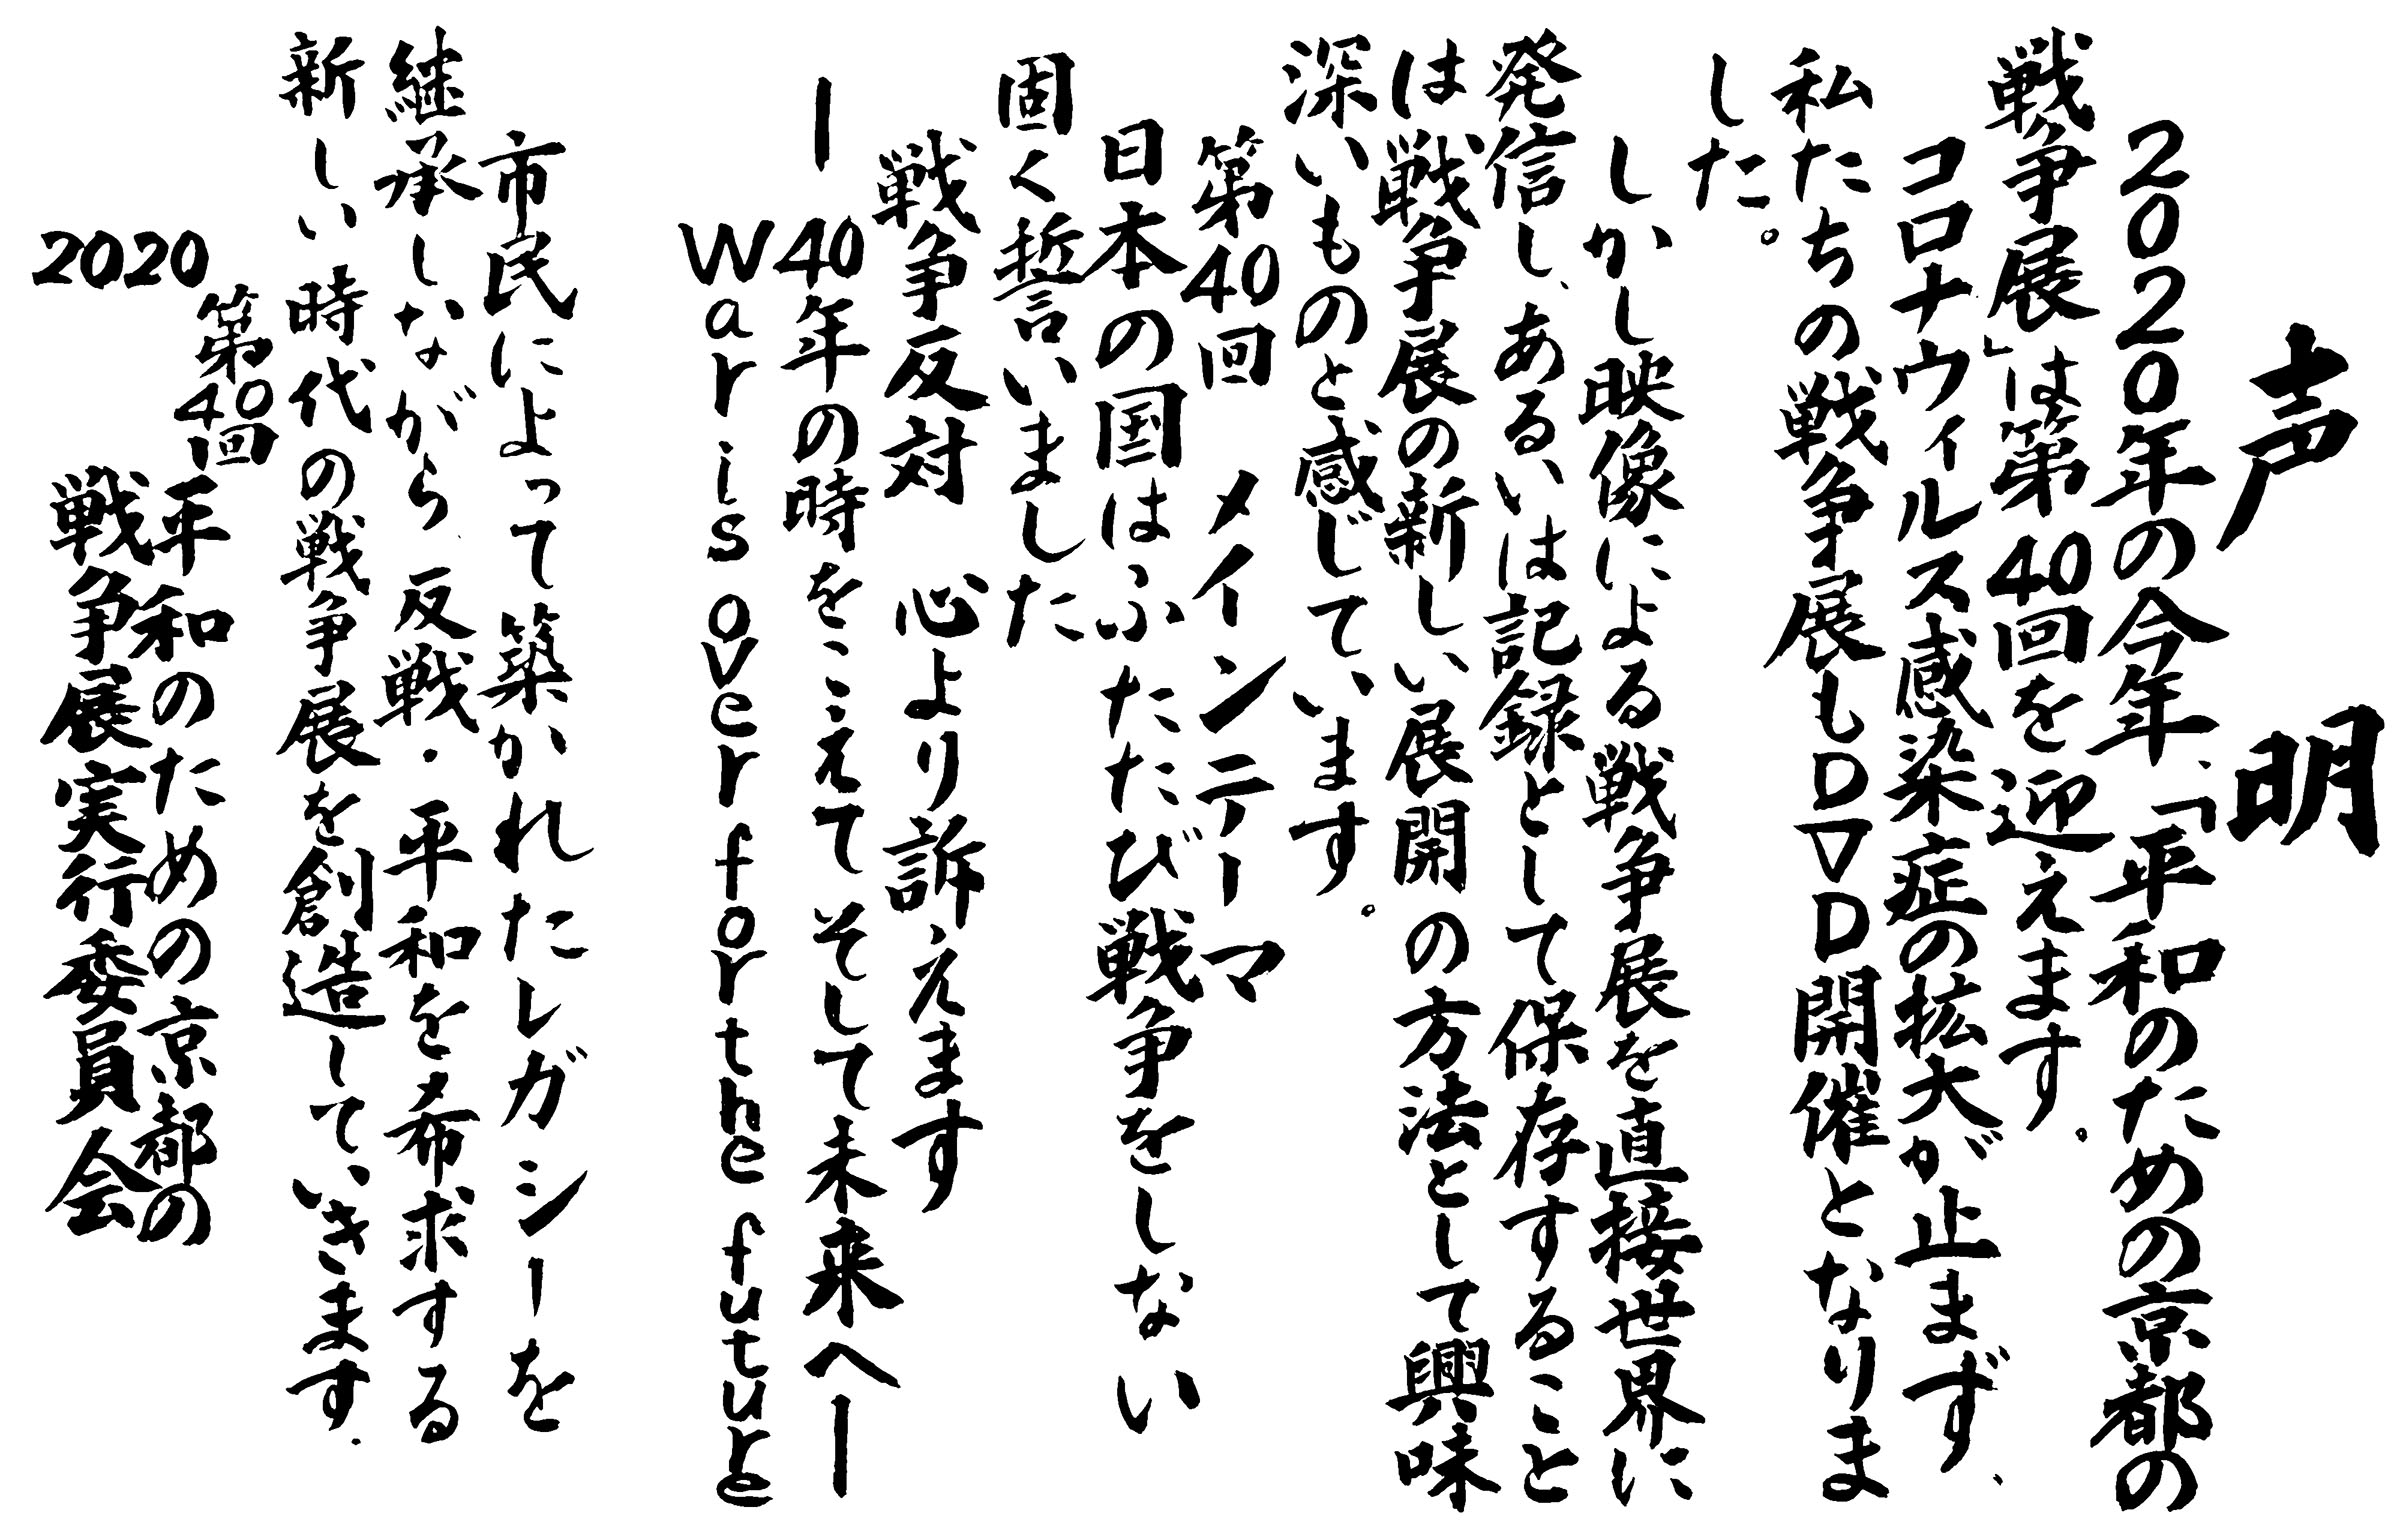 声明
2020年の今年、「平和のための京都の
戦争展」は第40回を迎えます。
コロナウィルス感染症の拡大が止まず、
私たちの戦争展もDVD開催となりま
した。
しかし映像による戦争展を直接世界に
発信し、あるいは記録として保存すること
は戦争展の新しい展開の方法として興味
深いものと感じています。
第40回 メインテーマ
日本の国はふたたび戦争をしない
固く誓いました
戦争反対 心より訴えます
ー40年の時をこえて そして未来へー
War is over for the future
市民によって築かれたレガシーを
継承しながら、反戦・平和を希求する
新しい時代の戦争展を創造していきます。
2020
第40回
平和のための京都の
戦争展実行委員会